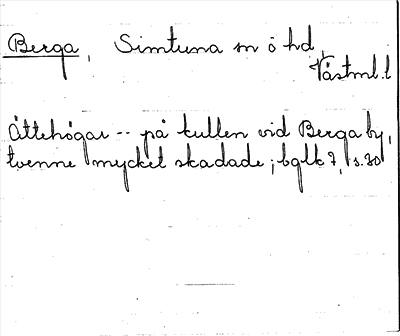 Berga, Simtuna sn o hd,
Västml.l
Ättehögar -- på kullen vid Berga by,
tvenne mycket skadade; bglk 7, s. 20